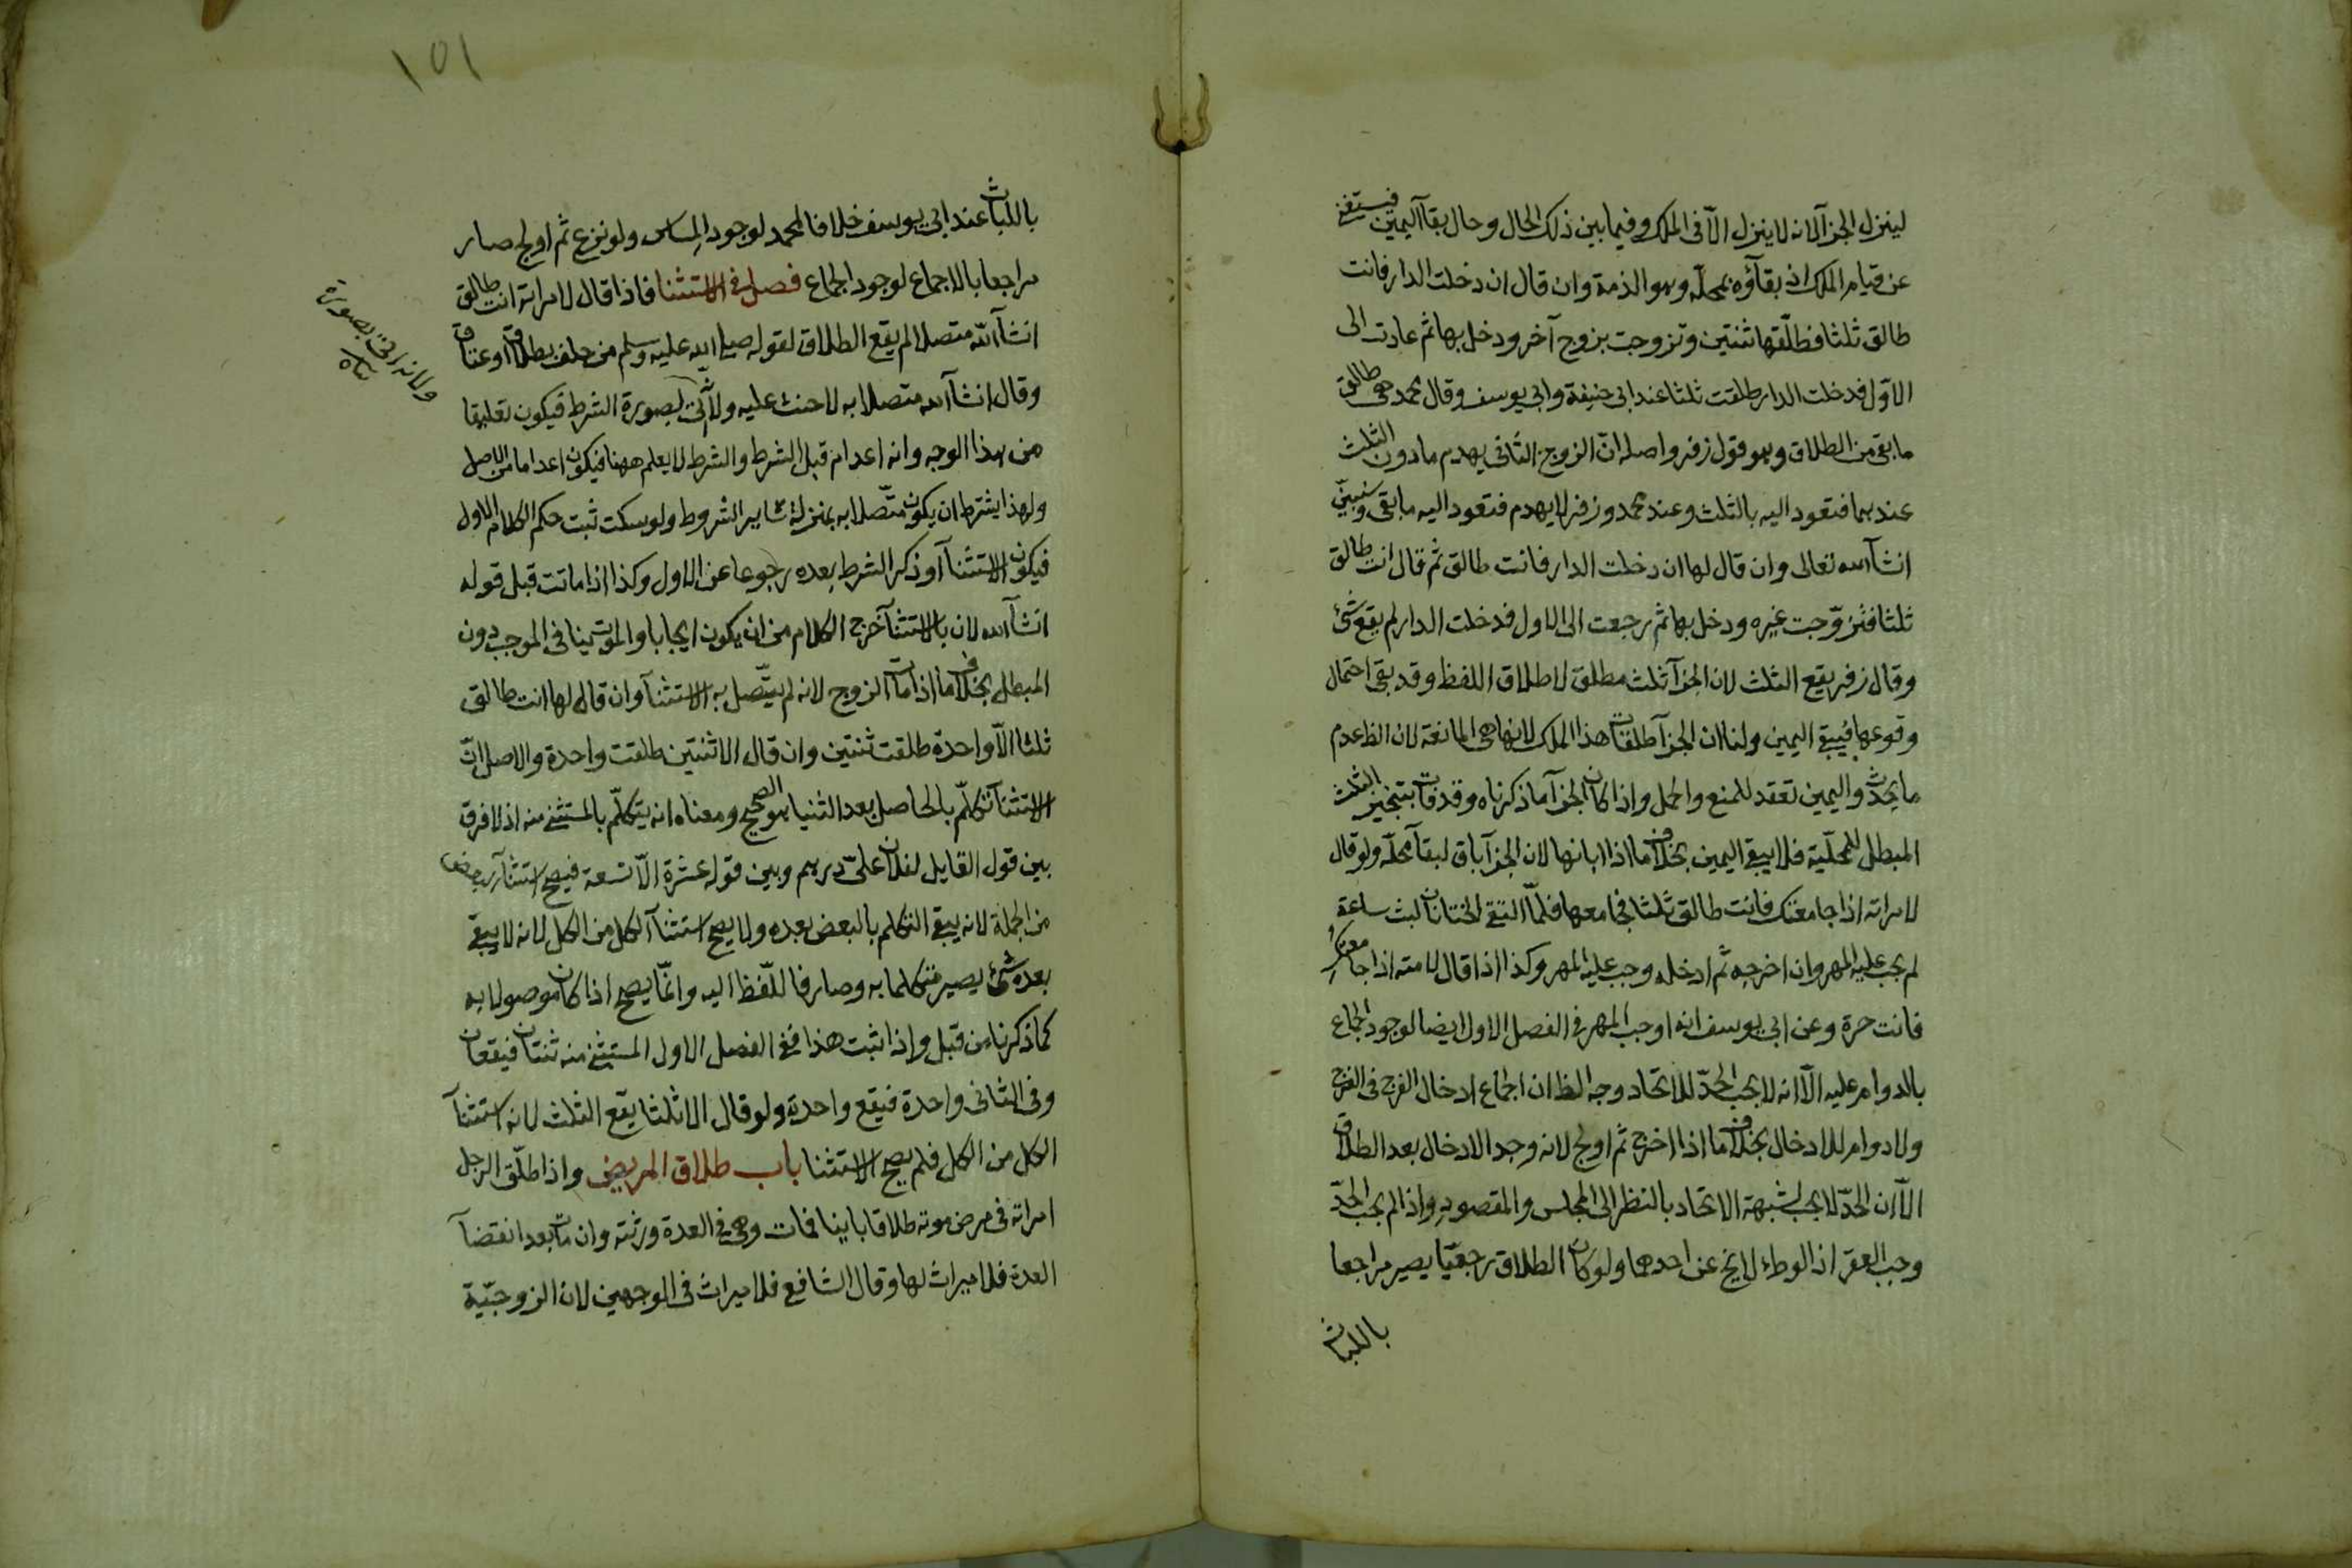 لينزل الجزآ لانه لا ينزل الّا فى الملك وفيما بين ذلك الحال وحال بقآ اليمين فيستغنى
عن قيام الملك اذ بقآؤه بمحلّه وهو الذمة وان قال ان دخلت الدار فانت
طالق ثلثا فطلّقها ثنتين وتزوجت بزوج آخر ودخل بها ثم عادت الى
الاوّل فدخلت الدار طلقت ثلثا عند ابى حنيفة وابى يوسف وقال محمد هى طالق
ما بقى من الطلاق وهو قول زفر واصله انّ الزوج الثانى يهدم ما دون الثلث
عندهما فتعود اليه بالثلث وعند محمد وزفر لا يهدم فتعود اليه ما بقى وسنبيّن
انشآ الله تعالى وان قال لها ان دخلت الدار فانت طالق ثم قال انت طالق
ثلثا فتزوّجت غيره ودخل بها ثم رجعت الى الاول فدخلت الدار لم يقع شئ
وقال زفر يقع الثلث لان الجزآ ثلث مطلق لاطلاق اللفظ وقد بقى احتمال
وقوعها فيبقى اليمين ولنا ان الجزآ طلقات هذا الملك لانها هى المانعة لان الظ عدم
ما يحدث واليمين تعقد للمنع والحمل واذا كان الجزآ ما ذكرناه وقد فات بتنجيز الثلث
المبطل للمحلّية فلا يبقى اليمين بخلاف ما اذا ابانها لان الجزآ باق لبقآ محلّه ولو قال
لامراته اذا جامعتك فانت طالق ثلثا فجامعها فلمّا التقى الختانان لبث ساعة
لم يجب عليه المهر وان اخرجه ثم ادخله وجب عليه المهر وكذا اذا قال لامته اذا جامعتك
فانت حرة وعن ابى يوسف انه اوجب المهر فى الفصل الاول ايضا لوجود الجماع
بالدوام عليه الّا انه لا يجب الحدّ للاتحاد وجه الظ ان الجماع ادخال الفرج فى الفرج
ولا دوام للادخال بخلاف ما اذا اخرج ثم اولج لانه وجد الادخال بعد الطلاق
الّا ان الحدّ لا يجب لشبهة الاتحاد بالنظر الى المجلس والمقصود واذا لم يجب الحدّ
وجب العقر اذ الوطء لا يخ عن احدهما ولو كان الطلاق رجعيّا يصير مراجعا
باللباث
١٥١
باللباث عند ابى يوسف خلافا لمحمد لوجود المساس ولو نزع ثم اولج صار
مراجعا بالاجماع لوجود الجماع فصل فى الاستثنا فاذا قال لامراته انت طالق
انشآ الله متصلا لم يقع الطلاق لقوله صلى الله عليه وسلم من حلف بطلاق او عتاق
وقال انشآ الله متصلا به لا حنث عليه ولانّى بصورة الشرط فيكون تعليقا
من هذا الوجه وانه اعدام قبل الشرط والشرط لا يعلم ههنا فيكون اعداما من الاصل
ولهذا يشترط ان يكون متّصلا به بمنزلة ساير الشروط ولو سكت ثبت حكم الكلام الاول
فيكون الاستثنآ او ذكر الشرط بعده رجوعا عن الاول وكذا اذا ماتت قبل قوله
انشآ الله لان بالاستثنآ خرج الكلام من ان يكون ايجابا والموت ينافى الموجب دون
المبطل بخلاف ما اذا مات الزوج لانه لم يتّصل به الاستثنآ وان قال لها انت طالق
ثلثا الّا واحدة طلقت ثنتين وان قال الا ثنتين طلقت واحدة والاصل انّ
الاستثنآ تكلّم بالحاصل بعد الثنيا هو الصحيح ومعناه انه يتكلّم بالمستثنى منه اذ لا فرق
بين قول القايل لفلان علىّ درهم وبين قوله عشرة الّا تسعة فيصح استثنآ البعض
من الجملة لانه يبقى التكلم بالبعض بعده ولا يصح استثنآ الكل من الكل لانه لا يبقى
بعده شئ يصير متكلما به وصارفا للّفظ اليه وانّما يصح اذا كان موصولا به
كما ذكرناه من قبل واذا ثبت هذا ففى الفصل الاول المستثنى منه ثنتان فيقعان
وفى الثانى واحدة فيقع واحدة ولو قال الا ثلثا يقع الثلث لانه استثنآ
الكل من الكل فلم يصح الاستثنا باب طلاق المريض واذا طلّق الرجل
امراته فى مرض موته طلاقا باينا فمات وهى فى العدة ورثته وان مات بعد انقضآ
العدة فلا ميراث لها وقال الشافع فلا ميراث فى الوجهين لان الزوجيّة
ولانه اتى بصورة